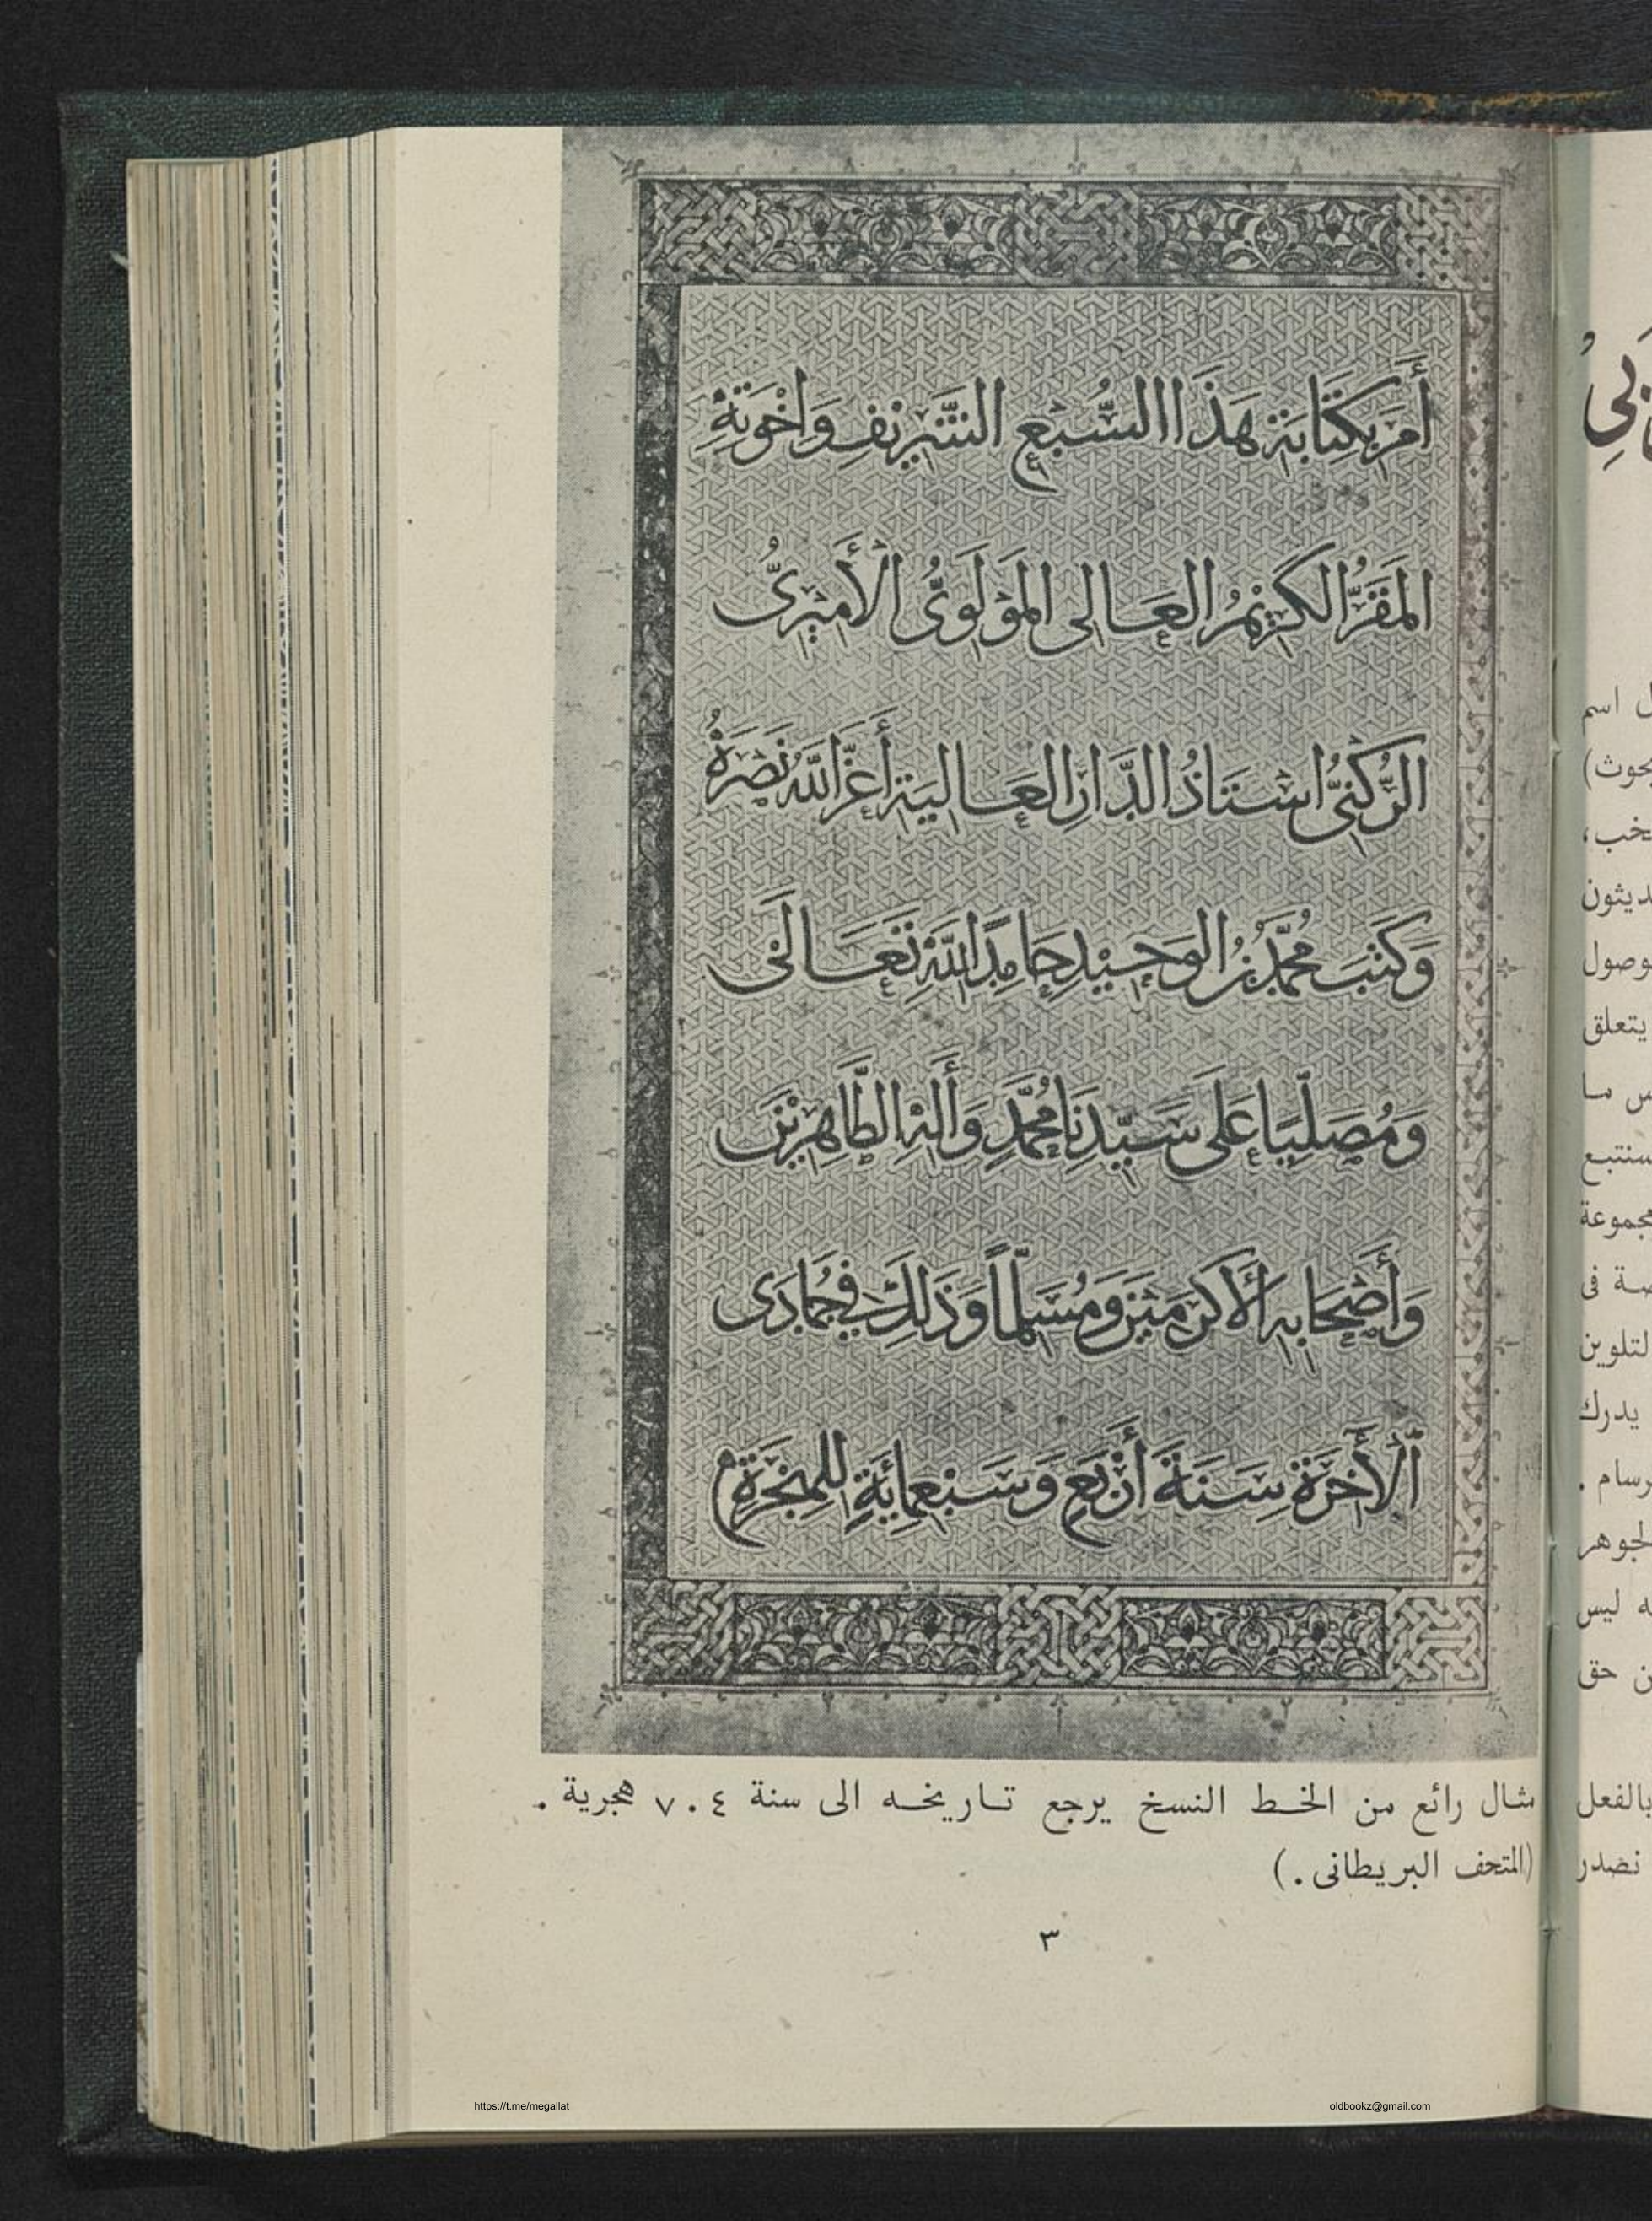 أَمَرَ بِكِتَابَةِ هَذَا السُّبْعِ الشَّرِيْفِ وَاخْوَتِهِ
المَقَرُّ الكَرِيْمُ العَالِى المَوْلَوِىُّ الأَمِيْرِىُّ
الرُّكْنِىُّ اسْتَاذُ الدَّارِ العَالِيَةِ أَعَزَّ اللَّهُ نَصْرَهُ
وَكَتَبَ مُحَمَّدُ بْنُ الوَحِيْدِ حَامِدًا لِلَّهِ تَعَالَى
وَمُصَلِّيًا عَلَى سَيِّدِنَا مُحَمَّدٍ وَأَلِهِ الطَّاهِرِيْنَ
وَأَصْحَابِهِ الأَكْرَمِيْنَ وَمُسَلِّمًا وَذَلِكَ فِي جُمَادَى
الأَخِرَةِ سَنَةَ أَرْبَعٍ وَسَبْعِمِائَةٍ لِلهِجْرَةِ
مثال رائع من الخط النسخ يرجع تاريخه الى سنة ٧٠٤ هجرية .
(المتحف البريطانى .)
٣
بي
اسم
يتعلق
ما
يدرك
ليس
حق
بالفعل
نصدر
https://t.me/megallat
oldbookz@gmail.com